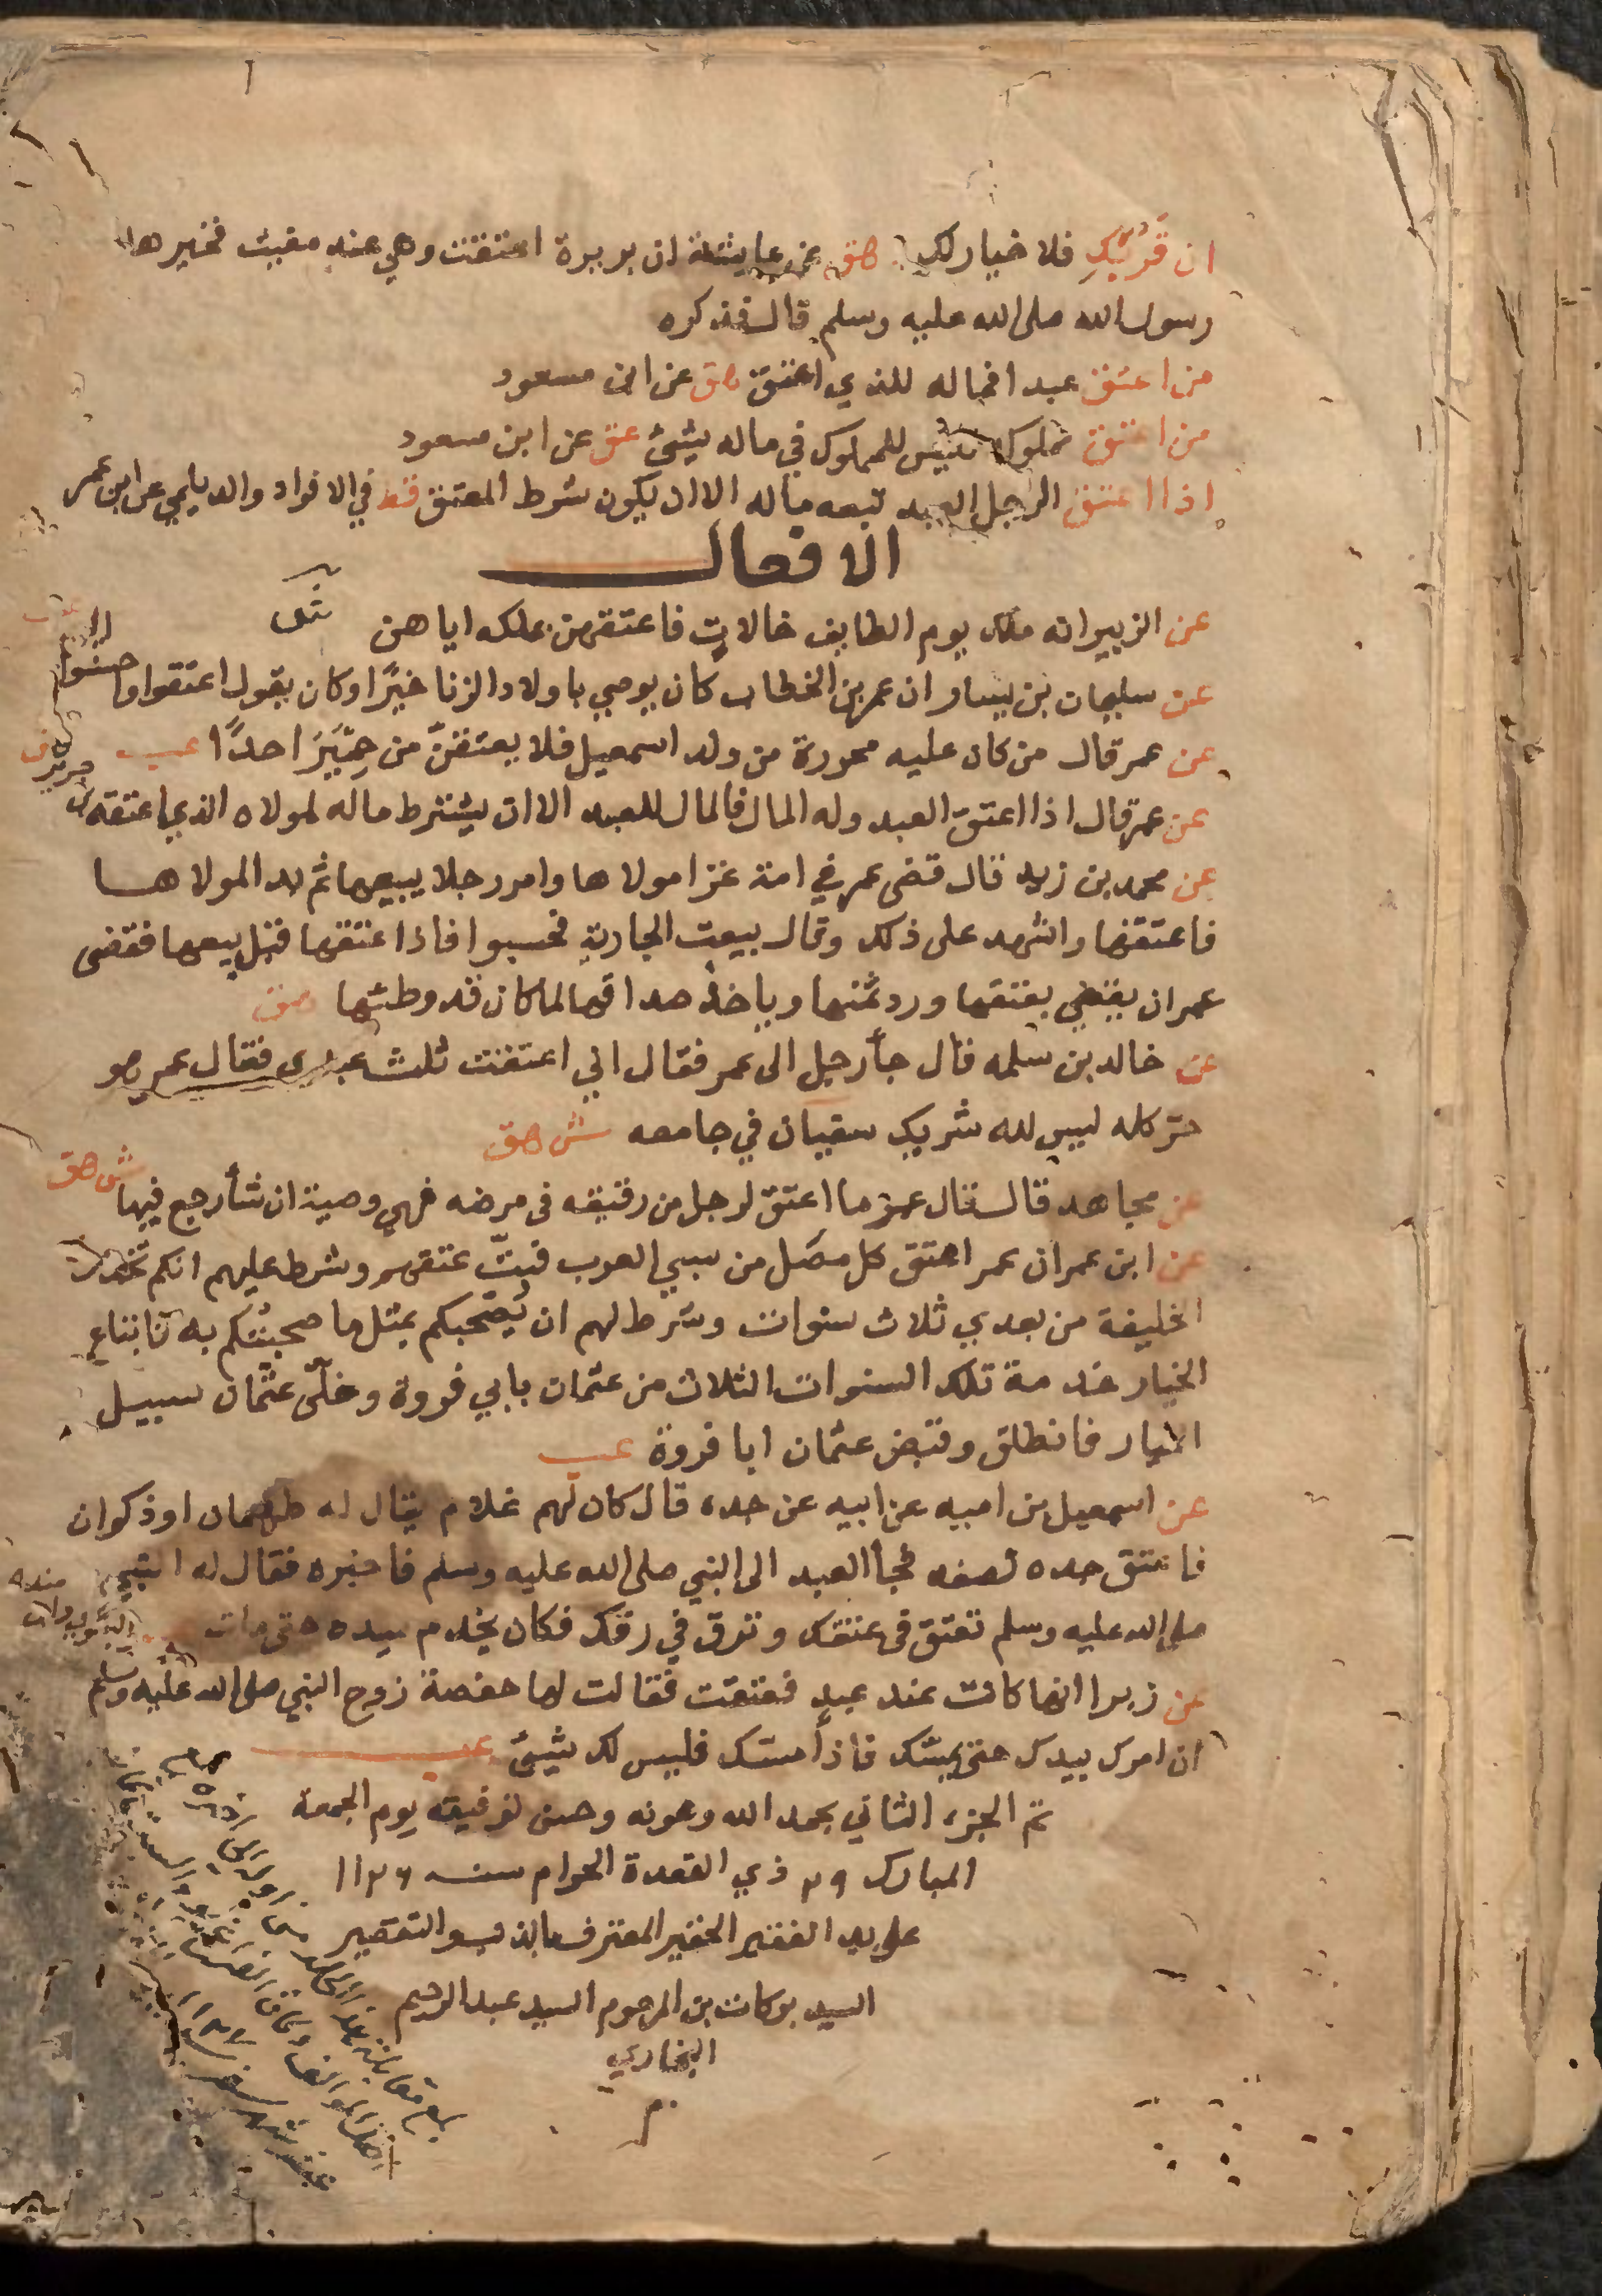 ان قَرُبَكِ فلا خيار لك هق عن عايشة ان بريرة اعتقت وهي عند مغيث فخيرها
رسول الله صلى الله عليه وسلم قال فذكره
من اعتق عبدا فماله للذي اعتق هق عن ابن مسعود
من اعتق مملوكا فليس للمملوك في ماله شيئ عق عن ابن مسعود
اذا اعتق الرجل العبد تبعه ماله الا ان يكون شرط المعتق قط في الافراد والديلمي عن ابن عمر
الافعال
عن الزبير انه ملك يوم الطايف خالات فاعتقهن بملكه اياهن
عن سليمان بن يسار ان عمر بن الخطاب كان يوصي باولاد الزنا خيرًا وكان يقول اعتقوا واحسنوا
عن عمر قال من كان عليه محررة من ولد اسمعيل فلا يعتقنّ من حِمْيَرَ احدًا عب
عن عمر قال اذا اعتق العبد وله المال فالمال للعبد الا ان يشترط ماله لمولاه الذي اعتقه
عن محمد بن زيد قال قضى عمر في امة غزا مولاها وامر رجلا يبيعها ثم بدا لمولاها
فاعتقها واشهد على ذلك وقال بيعت الجارية فحسبوا فاذا عتقها قبل بيعها فقضى
عمر ان يقضي بعتقها ورد ثمنها وياخذ صداقها لما كان قد وطئها هق
عن خالد بن سلمه قال جأ رجل الى عمر فقال اني اعتقت ثلث عبدي فقال عمر هو
حر كله ليس لله شريك سفيان في جامعه ش هق
عن مجاهد قال قال عمر ما اعتق الرجل من رقيقه في مرضه فهي وصية ان شأ رجع فيها ش هق
عن ابن عمر ان عمر اعتق كل مصَل من سبي العرب فبتّ عتقهم وشرط عليهم انكم تخدمون
الخليفة من بعدي ثلاث سنوات وشرط لهم ان يُصحبكم بمثل ما صحبتكم به فابتاع
الخيار خدمة تلك السنوات الثلاث من عثمان بابي فروة وخلّى عثمان سبيل
الخيار فانطلق وقبض عثمان ابا فروة عب
عن اسمعيل بن اميه عن ابيه عن جده قال كان لهم غلام يقال له طهمان او ذكوان
فاعتق جده نصفه فجأ العبد الى النبي صلى الله عليه وسلم فاخبره فقال له النبي
صلى الله عليه وسلم تعتق في عتقك وترق في رقك فكان يخدم سيده حتى مات
عن زبرا انها كانت عند عبد فعتقت فقالت لها حفصة زوج النبي صلى الله عليه وسلم
ان امرك بيدك حتى يمسّك فاذا مسّك فليس لك شيئ عب
تم الجزء الثاني بحمد الله وعونه وحسن توفيقه يوم الجمعة
المبارك ٢٩ ذي القعدة الحرام سنه ١١٢٦
على يد الفقير الحقير المعترف بالذنب والتقصير
السيد بركات بن المرحوم السيد عبد الرحيم
البخاري
م